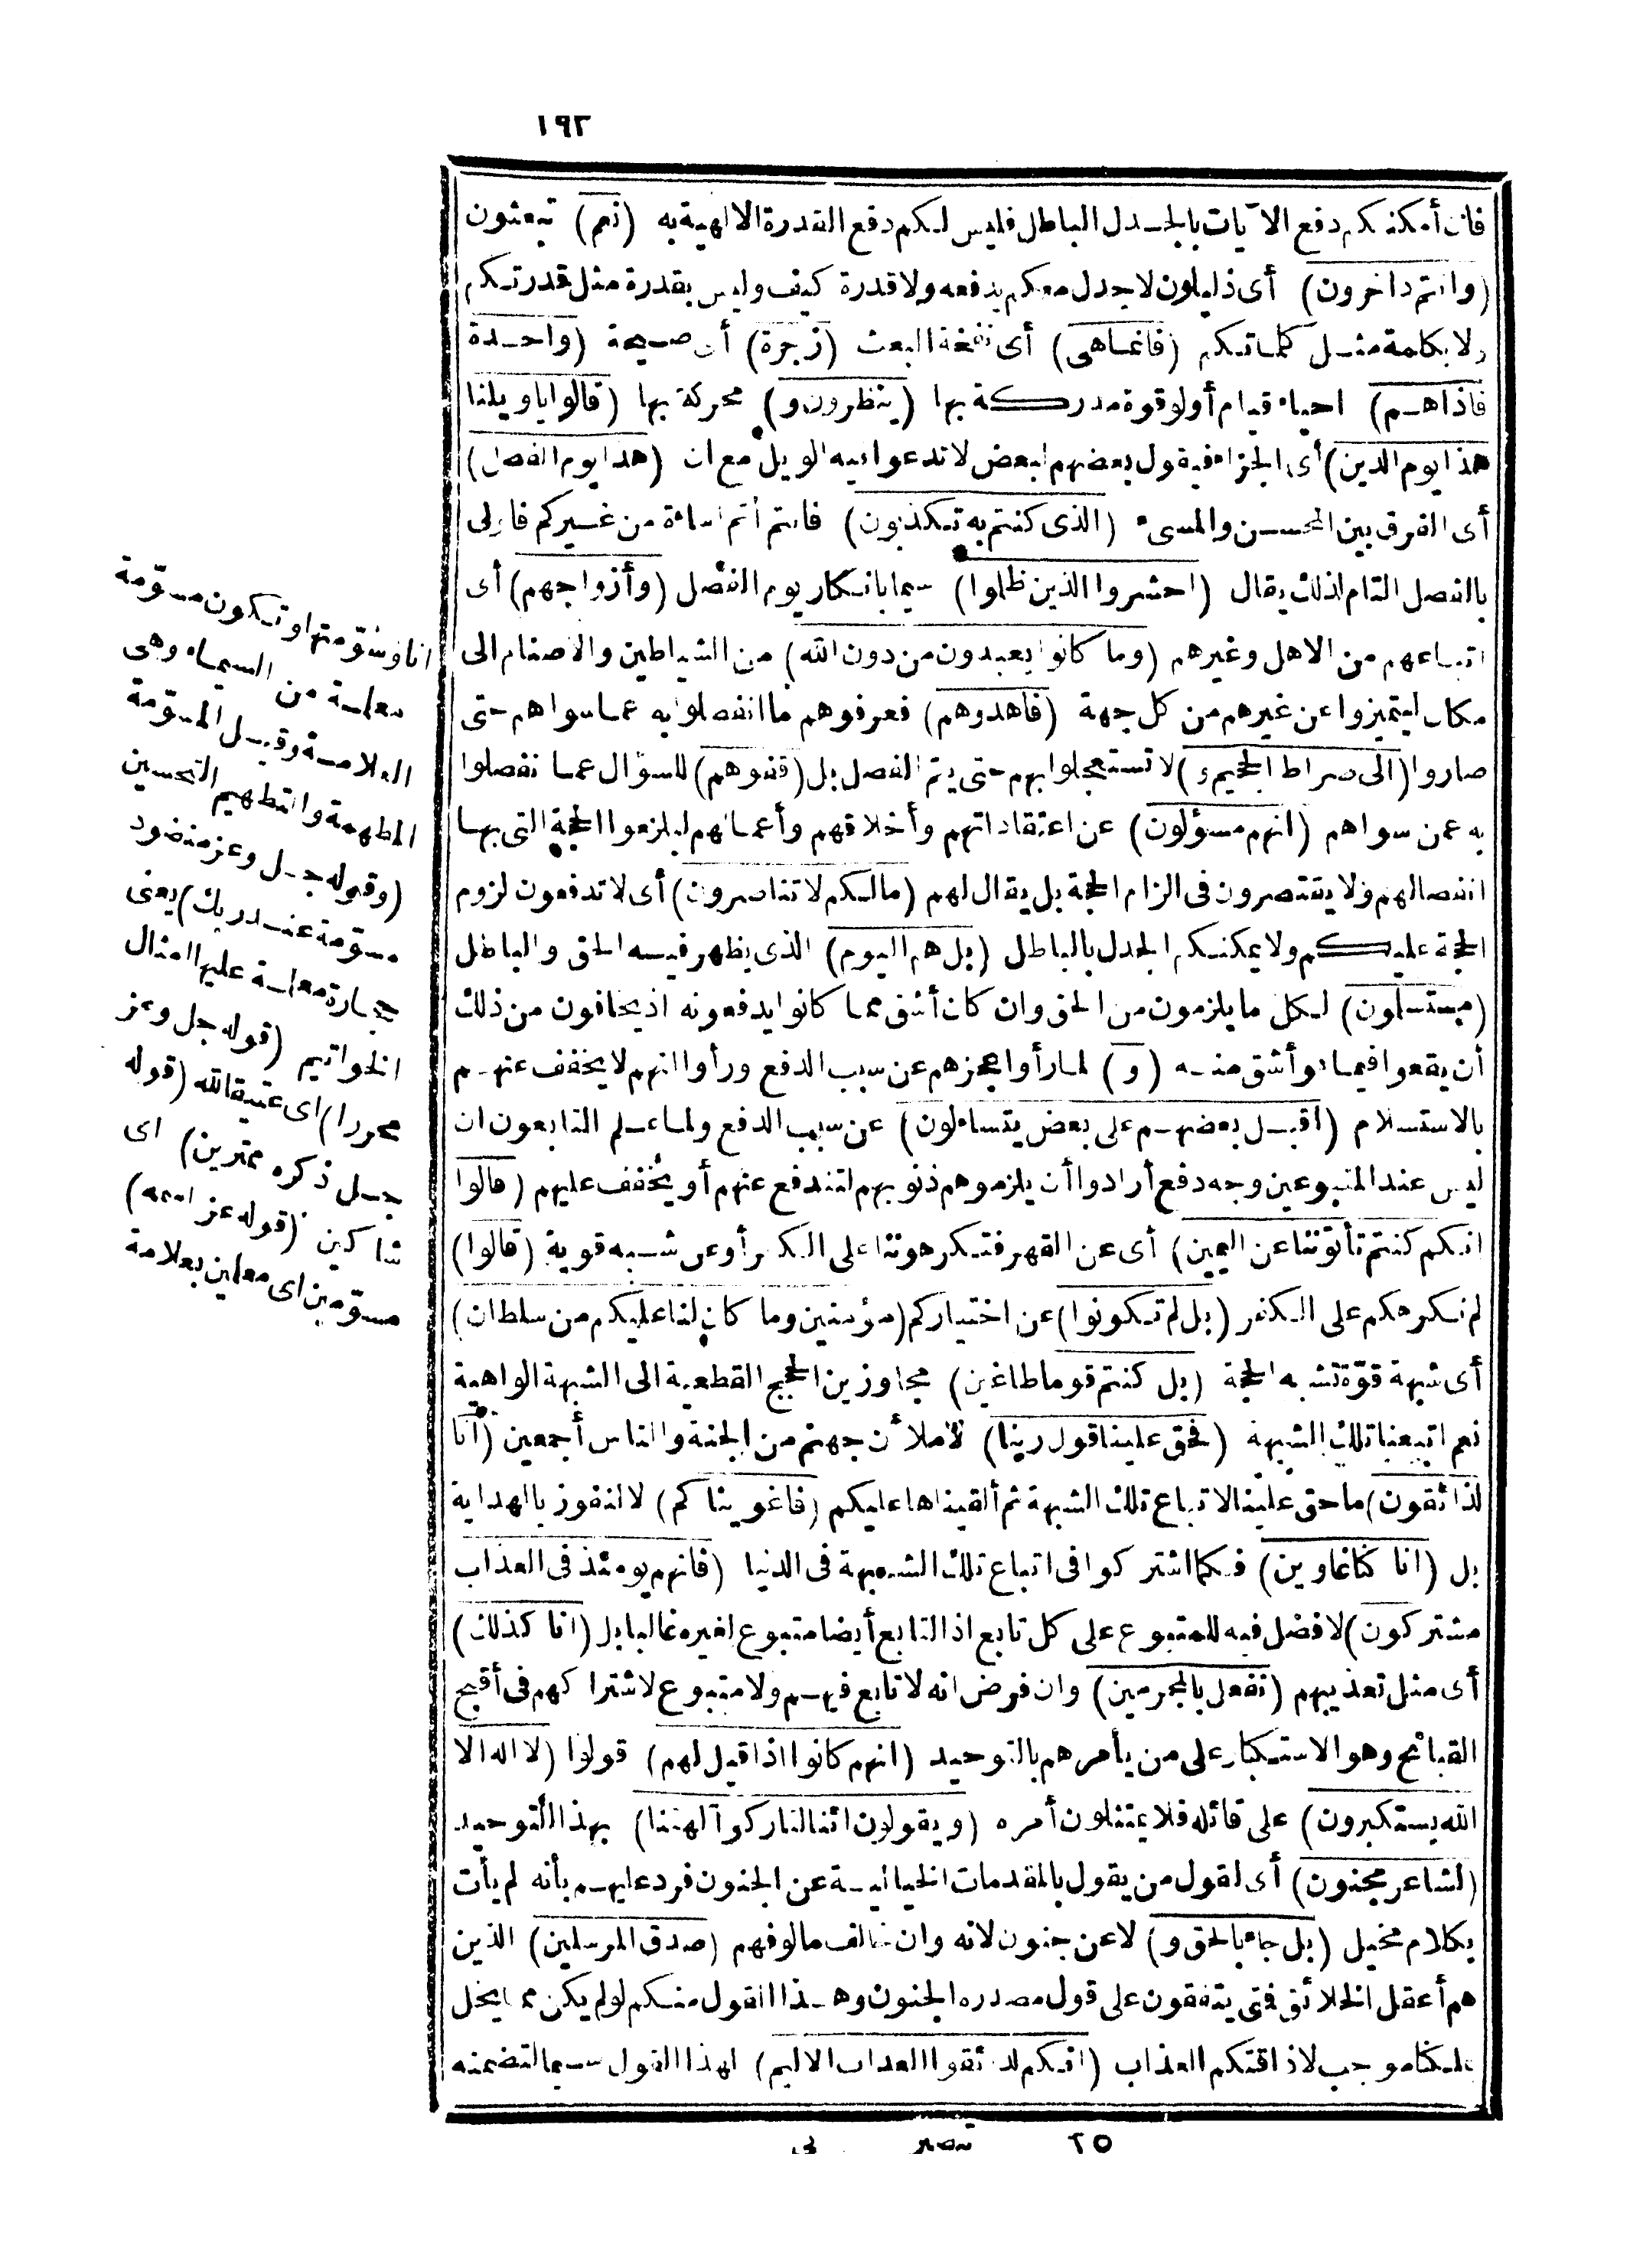 ١٩٣
فان أمكنكم دفع الآيات بالجدل الباطل فليس لكم دفع القدرة الالهية به (نعم) تبعثون
(وانتم داخرون) أى ذليلون لا جدل معكم يدفعه ولا قدرة كيف وليس بقدرة مثل قدرتكم
ولا بكلمة مثل كلماتكم (فانماهى) أى نفخة البعث (زجرة) أى صيحة (واحدة
فاذاهم) احياء قيام أولو قوة مدركة بها (ينظرون و) محركة بها (قالوا ياويلنا
هذا يوم الدين) أى الجزاء فيقول بعضهم لبعض لا تدعوا فيه الويل مع ان (هذا يوم الفصل)
أى الفرق بين المحسن والمسىء (الذى كنتم به تكذبون) فانتم أتم اساءة من غيركم فاولى
بالفصل التام لذلك يقال (احشروا الذين ظلموا) سيما بانكار يوم الفصل (وأزواجهم) أى
اتباعهم من الاهل وغيرهم (وما كانوا يعبدون من دون الله) من الشياطين والاصنام الى
مكان ليتميزوا عن غيرهم من كل جهة (فاهدوهم) فعرفوهم ما انفصلوا به عما سواهم حتى
صاروا (الى صراط الجحيم و) لا تستعجلوا بهم حتى يتم الفصل بل (قفوهم) للسؤال عما نفصلوا
به عمن سواهم (انهم مسؤلون) عن اعتقاداتهم وأخلاقهم وأعمالهم ليلزموا الحجة التى بها
انفصالهم ولا يقتصرون فى الزام الحجة بل يقال لهم (مالكم لا تناصرون) أى لا تدفعون لزوم
الحجة عليكم ولا يمكنكم الجدل بالباطل (بل هم اليوم) الذى يظهر فيه الحق والباطل
(مستسلمون) لكل ما يلزمون من الحق وان كان أشق مما كانوا يدفعونه اذ يخافون من ذلك
أن يقعوا فيما هو أشق منه (و) لما رأوا عجزهم عن سبب الدفع ورأوا انهم لا يخفف عنهم
بالاستسلام (أقبل بعضهم على بعض يتساءلون) عن سبب الدفع ولما علم التابعون ان
ليس عند المتبوعين وجه دفع أرادوا أن يلزموهم ذنوبهم لتندفع عنهم أو يخفف عليهم (قالوا
انكم كنتم تأتوننا عن اليمين) أى عن القهر فتكرهوننا على الكفر أو عن شبه قوية (قالوا)
لم نكرهكم على الكفر (بل لم تكونوا) عن اختياركم (مؤمنين وما كان لنا عليكم من سلطان)
أى شبهة قوّة تشبه الحجة (بل كنتم قوما طاغين) مجاوزين الحجج القطعية الى الشبهة الواهية
نعم اتبعنا تلك الشبهة (فحق علينا قول ربنا) لأملأن جهنم من الجنة والناس أجمعين (انا
لذائقون) ما حق علينا الاتباع تلك الشبهة ثم ألقيناها عليكم (فاغويناكم) لا لنفوز بالهداية
بل (انا كنا غاوين) فكما اشتركوا فى اتباع تلك الشبهة فى الدنيا (فانهم يومئذ فى العذاب
مشتركون) لا فضل فيه للمتبوع على كل تابع اذ التابع أيضا متبوع لغيره غالبا بل (انا كذلك)
أى مثل تعذيبهم (نفعل بالمجرمين) وان فرض انه لا تابع فيهم ولا متبوع لاشتراكهم فى أقبح
القبائح وهو الاستكبار على من يأمرهم بالتوحيد (انهم كانوا اذا قيل لهم) قولوا (لا اله الا
الله يستكبرون) على قائله فلا يمتثلون أمره (ويقولون ائنا لتاركوا آلهتنا) بهذا التوحيد
(لشاعر مجنون) أى لقول من يقول بالمقدمات الخيالية عن الجنون فرد عليهم بأنه لم يأت
بكلام مخيل (بل جاء بالحق و) لا عن جنون لانه وان خالف مالوفهم (صدق المرسلين) الذين
هم أعقل الخلائق فتى يتفقون على قول مصدره الجنون وهذا القول منكم لو لم يكن مما يخل
ملكنا موجب لاذاقتكم العذاب (انكم لذائقوا العذاب الاليم) لهذا القول سيما لتضمنه
اناوسوّمتها او تكون مسوّمة
معلمة من السيماء وهى
العلامة وقيل المسوّمة
المطهمة والتطهيم التحسين
(وقوله جل وعز منضود
مسوّمة عند ربك) يعنى
حجارة معلمة عليها امثال
الخواتيم (قوله جل وعز
محررا) اى عتيقا لله (قوله
جل ذكره ممترين) اى
شاكين (قوله عز اسمه)
مسوّمين اى معلمين بعلامة
٢٥ تبصير نى